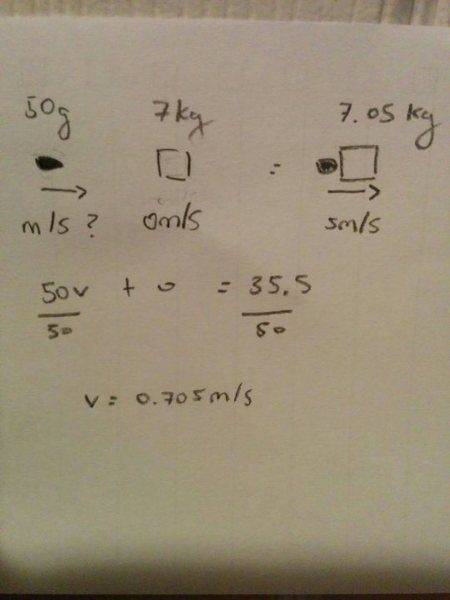 50g 7kg 7.05 kg
=
m/s ? 0m/s 5m/s
50v + 0 = 35.5
50 50
v = 0.705 m/s